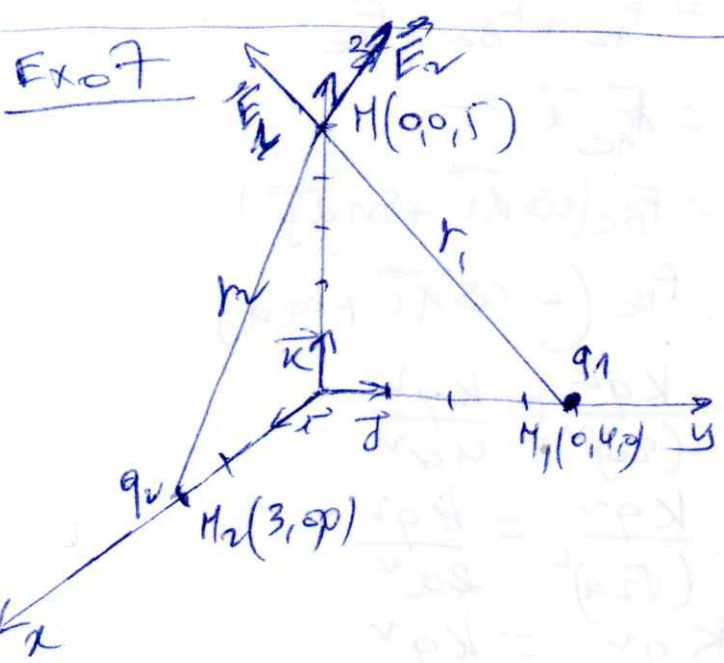 Exo 7
z
E⃗₂
E⃗₁
M(0,0,5)
r₁
r₂
k⃗
i⃗
j⃗
q₁
M₁(0,4,0)
y
q₂
M₂(3,0,0)
x